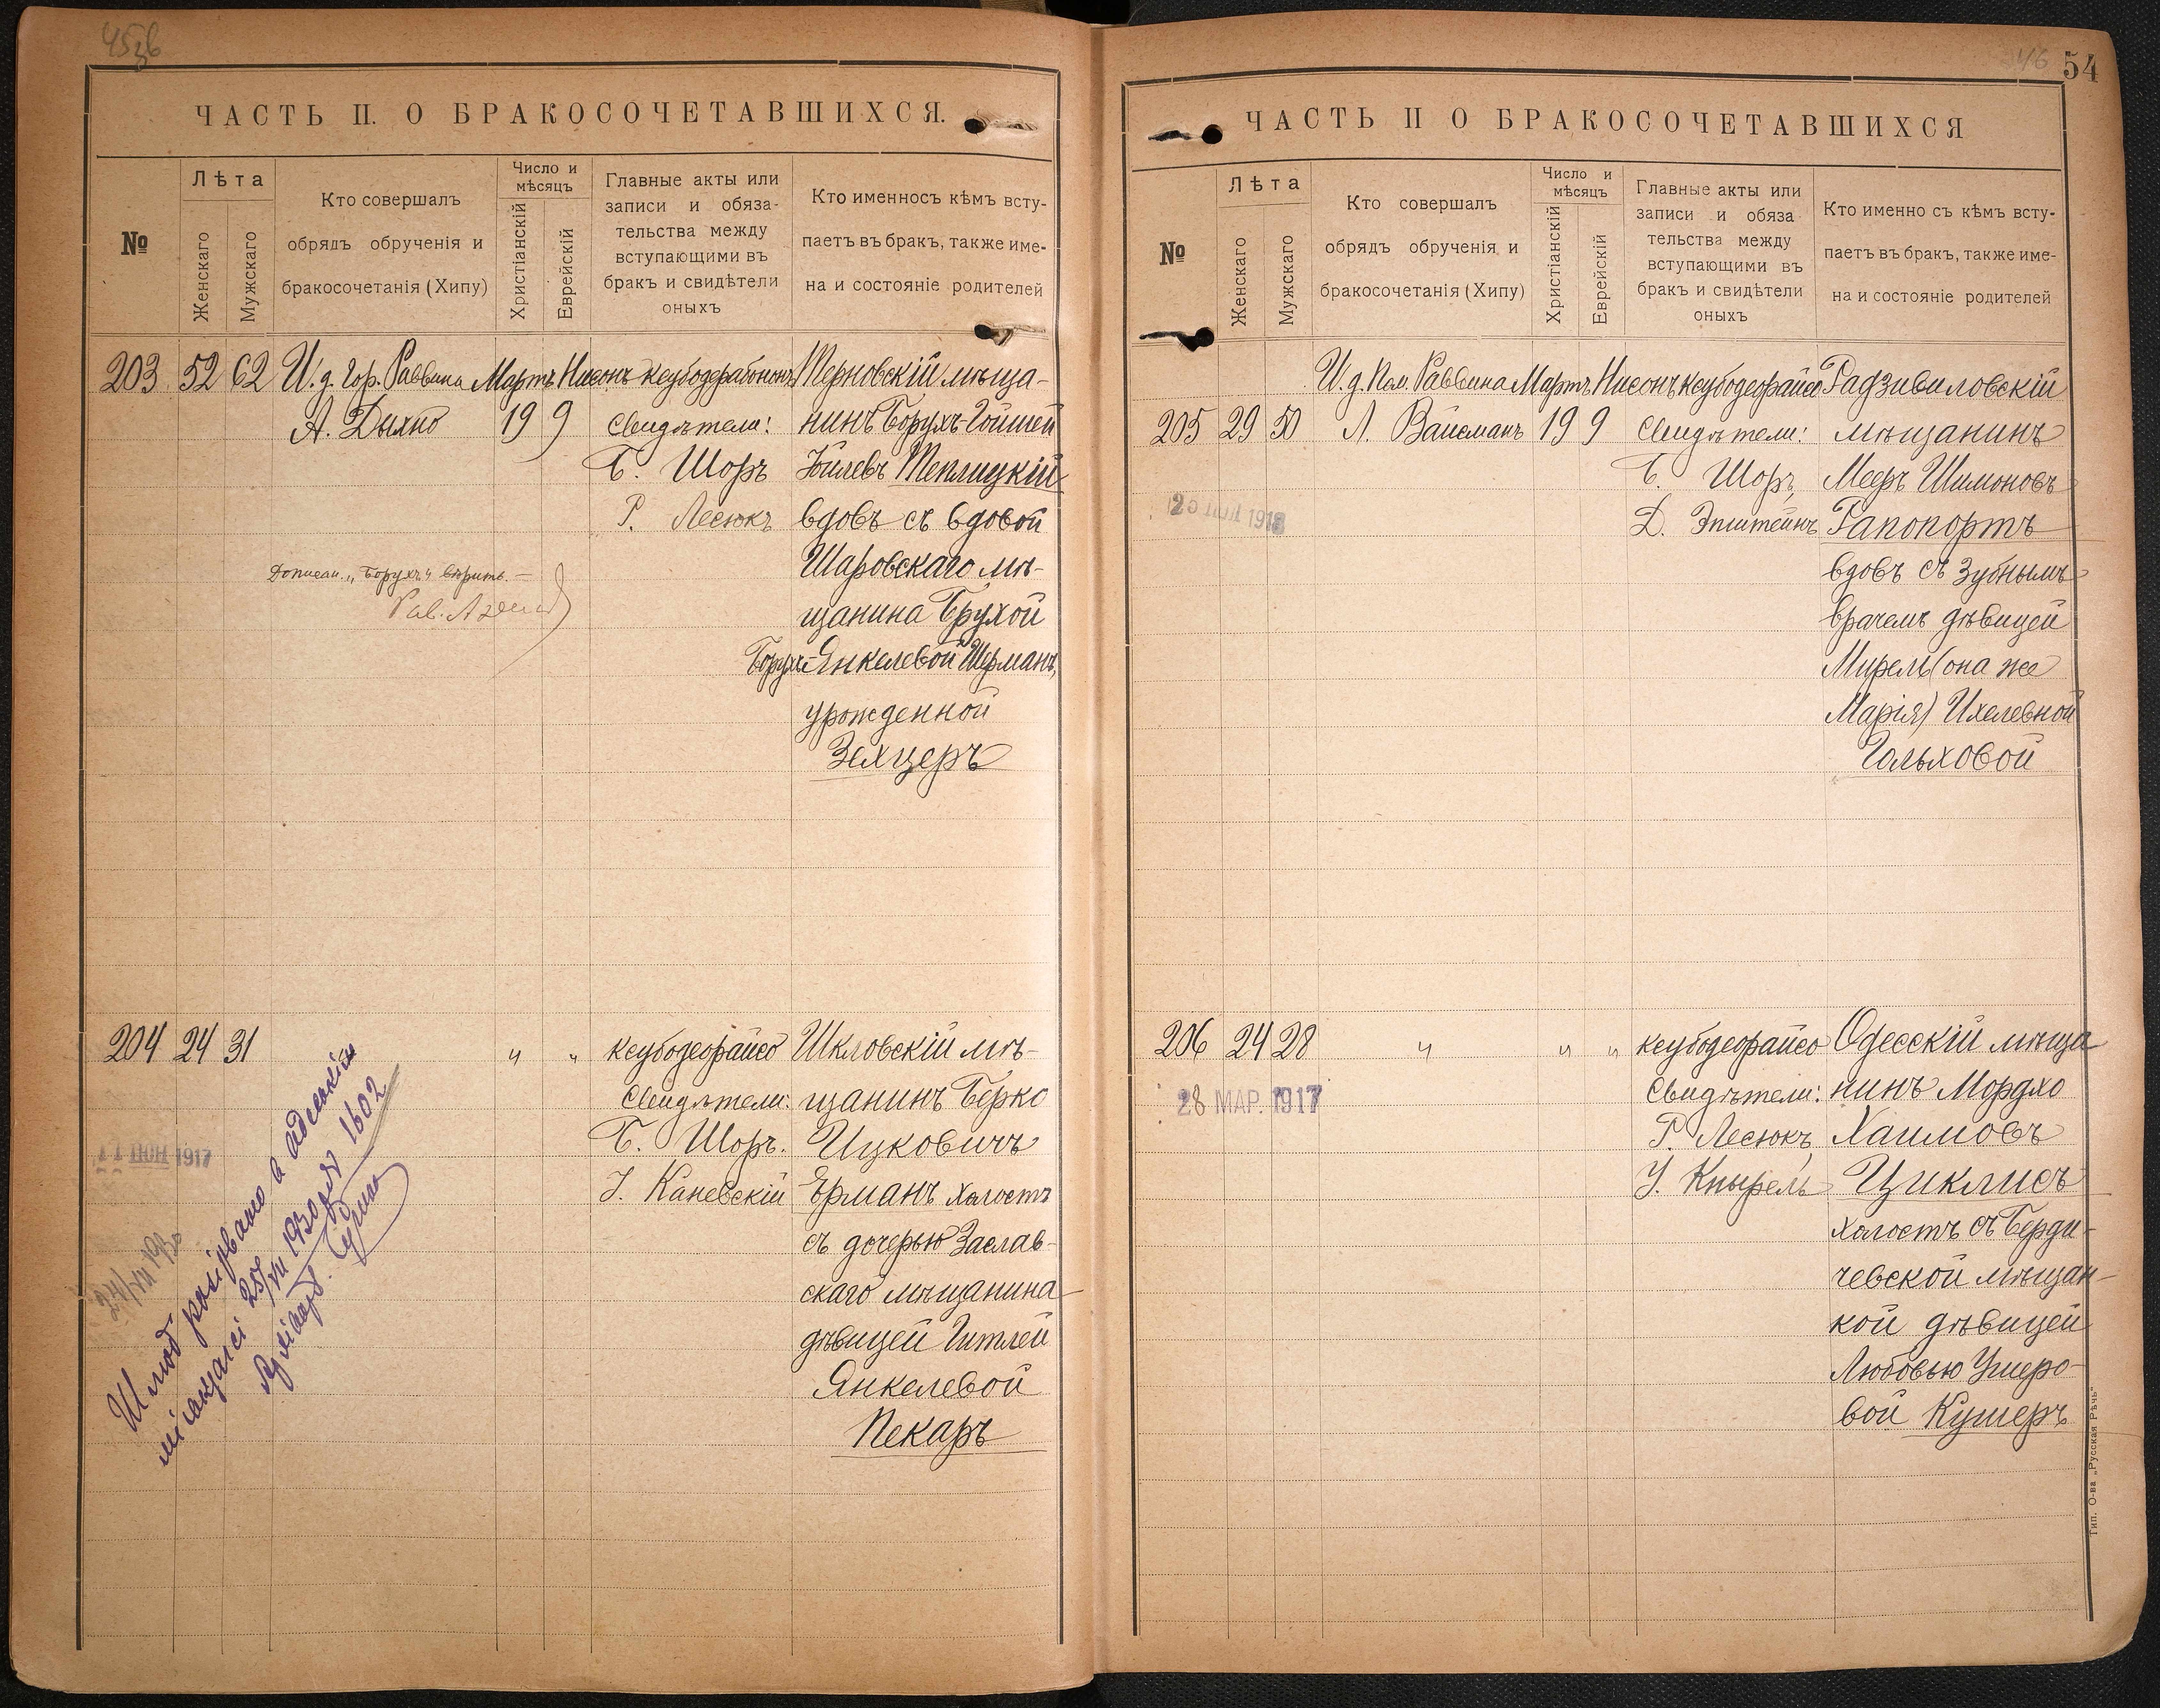 ЧАСТЬ II. О БРАКОСОЧЕТАВШИХСЯ.
№
Лѣта
Женскаго
Мужскаго
Кто совершалъ
обрядъ обрученія и
бракосочетанія (Хипу)
Число и
мѣсяцъ
Христіанскій
Еврейскій
Главные акты или
записи и обяза-
тельства между
вступающими въ
бракъ и свидѣтели
оныхъ
Кто именносъ кѣмъ всту-
паетъ въ бракъ, также име-
на и состояніе родителей
203 52 62
И. д. Гор. Раввина
А. Дыхно
Мартъ
19
Нисонъ
9
Свидѣтели:
Б. Шоръ
Р. Лесюкъ
Терновскій мѣща-
нинъ Борухъ-Гойшей
Теплицкій
вдовъ съ вдовой
Шаровскаго мѣ-
щанина Брухой
Борухъ-Янкелевой Шерманъ,
урожденной
Зехцеръ
Дописан. „Борухъ" вѣрить. —
204 24 31
" "
ксубодеорайсо
Свидѣтели:
Б. Шоръ.
І. Каневскій
Шкловскій мѣ-
щанинъ Берко
Ицковичъ
Ерманъ холостъ
съ дочерью Заслав-
скаго мѣщанина
дѣвицей Гитлей
Янкелевой
Пекаръ
1917
1602
54
ЧАСТЬ II О БРАКОСОЧЕТАВШИХСЯ
№
Лѣта
Женскаго
Мужскаго
Кто совершалъ
обрядъ обрученія и
бракосочетанія (Хипу)
Число и
мѣсяцъ
Христіанскій
Еврейскій
Главные акты или
записи и обяза
тельства между
вступающими въ
бракъ и свидѣтели
оныхъ
Кто именно съ кѣмъ всту-
паетъ въ бракъ, также име-
на и состояніе родителей
205 29 50
И. д. Пом. Раввина
Л. Вайсманъ
Мартъ
19
Нисонъ
9
ксубодеорайсо
Свидѣтели:
Б. Шоръ,
Д. Эпштейнъ
Радзивиловскій
мѣщанинъ
Мееръ Шимоновъ
Рапопортъ
вдовъ съ зубнымъ
врачемъ дѣвицей
Мирель (она же
Марія) Ихелевной
Гольховой
206 24 28
" " "
28 МАР. 1917
ксубодеорайсо
Свидѣтели:
Р. Лесюкъ,
У. Кнырель
Одесскій мѣща
нинъ Мордхо
Хаимовъ
Циклисъ
холостъ съ Берди-
чевской мѣщан-
кой дѣвицей
Любовью Ушеро-
вой Кушеръ
Тип. О-ва „Русская Рѣчь"